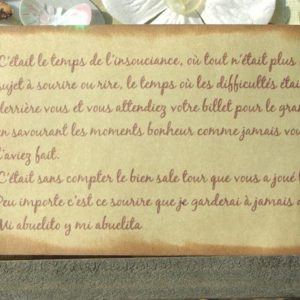 C'était le temps de l'insouciance, où tout n'était plus
sujet à sourire ou rire, le temps où les difficultés étai
derrière vous et vous attendiez votre billet pour le gran
en savourant les moments bonheur comme jamais vou
l'aviez fait.
C'était sans compter le bien sale tour que vous a joué l
Peu importe c'est ce sourire que je garderai à jamais d
Mi abuelito y mi abuelita